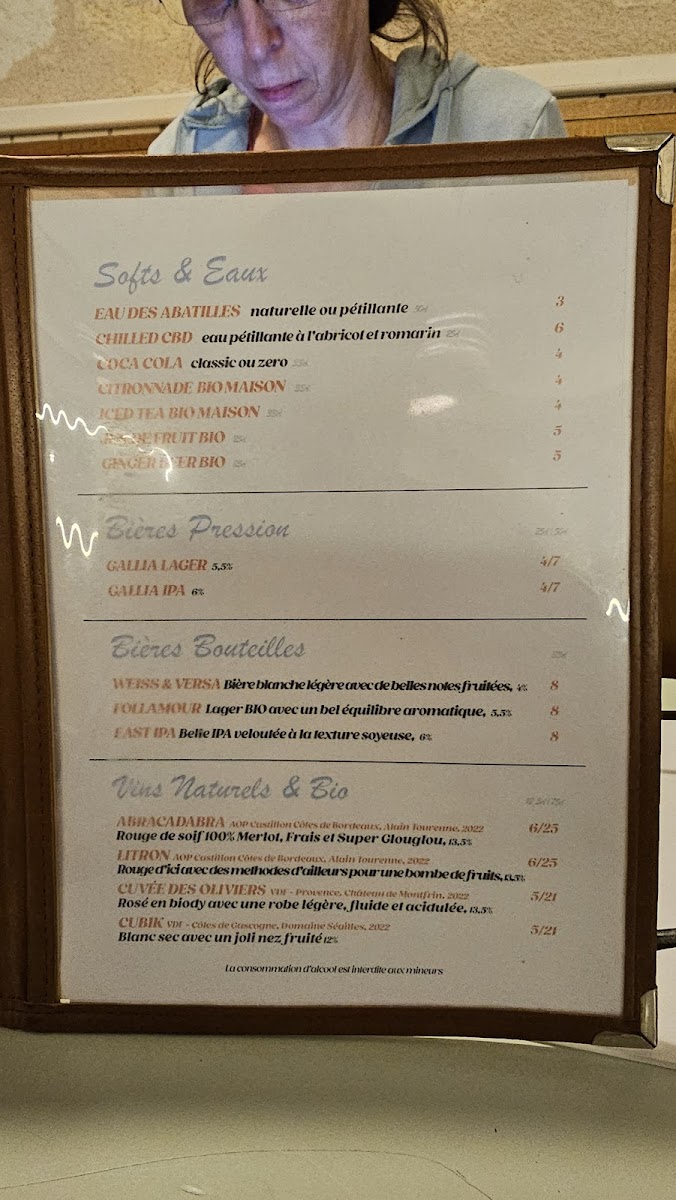 Softs & Eaux
EAU DES ABATILLES naturelle ou pétillante 50cl 3
CHILLED CBD eau pétillante à l'abricot et romarin 25cl 6
COCA COLA classic ou zero 33cl 4
CITRONNADE BIO MAISON 35cl 4
ICED TEA BIO MAISON 35cl 4
JUS DE FRUIT BIO 25cl 5
GINGER BEER BIO 25cl 5
Bières Pression 25cl/50cl
GALLIA LAGER 5,5% 4/7
GALLIA IPA 6% 4/7
Bières Bouteilles
WEISS & VERSA Bière blanche légére avec de belles notes fruitées, 4% 8
FOLLAMOUR Lager BIO avec un bel équilibre aromatique, 5,5% 8
EAST IPA Belle IPA veloutée à la texture soyeuse, 6% 8
Vins Naturels & Bio 12,5cl/75cl
ABRACADABRA AOP Castillon Côtes de Bordeaux, Alain Tourenne, 2022 6/25
Rouge de soif 100% Merlot, Frais et Super Glouglou, 13,5%
LITRON AOP Castillon Côtes de Bordeaux, Alain Tourenne, 2022 6/25
Rouge d'ici avec des methodes d'ailleurs pour une bombe de fruits, 13,5%
CUVÉE DES OLIVIERS VDF - Provence, Château de Montfrin, 2022 5/21
Rosé en biody avec une robe légère, fluide et acidulée, 13,5%
CUBIK VDF - Côtes de Gascogne, Domaine Séailles, 2022 5/21
Blanc sec avec un joli nez fruité 12%
La consommation d'alcool est interdite aux mineurs